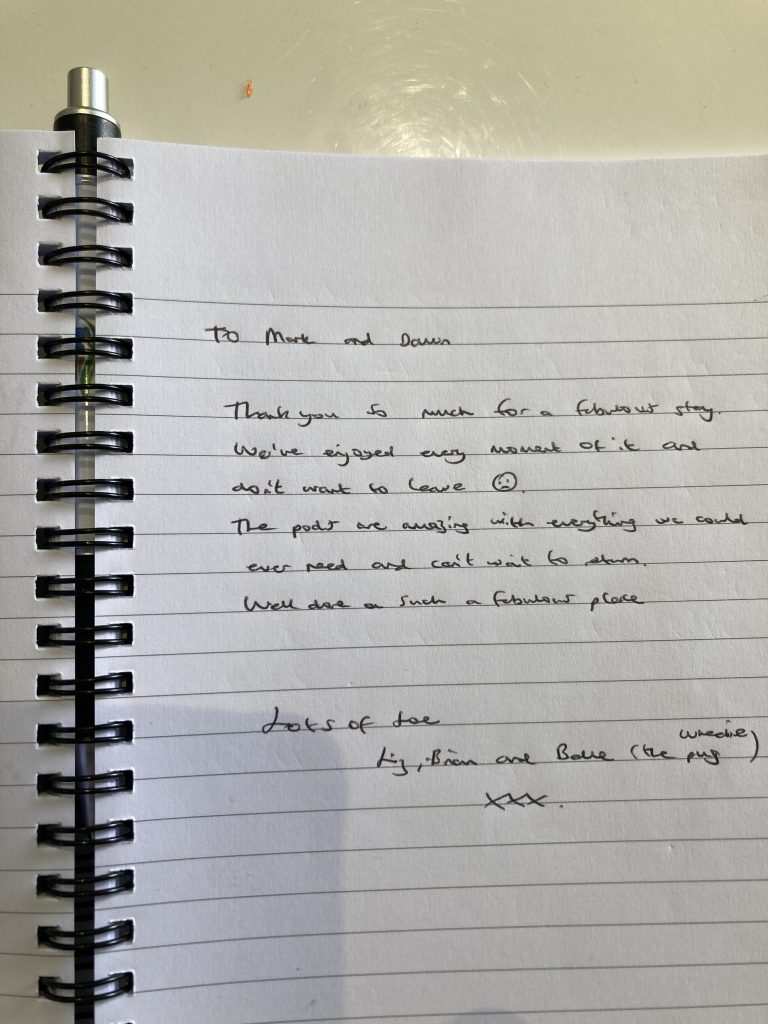 To Mark and Dawn
Thank you so much for a fabulous stay.
We've enjoyed every moment of it and
don't want to leave ☹.
The pods are amazing with everything we could
ever need and can't wait to return.
Well done on such a fabulous place
Lots of love
Liz, Brian and (the wheelie pug)
xxx.